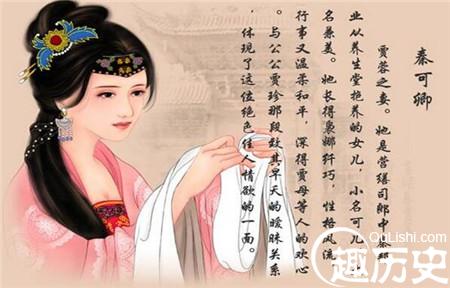 秦可卿
贾蓉之妻。她是营缮司郎中秦邦
业从养生堂抱养的女儿,小名可儿,大
名兼美。她长得袅娜纤巧,性格风流,
行事又温柔和平,深得贾母等人的欢心
。与公公贾珍那段致其早夭的暧昧关系
,体现了这位绝色佳人情欲的一面。
QuLishi.com
趣历史